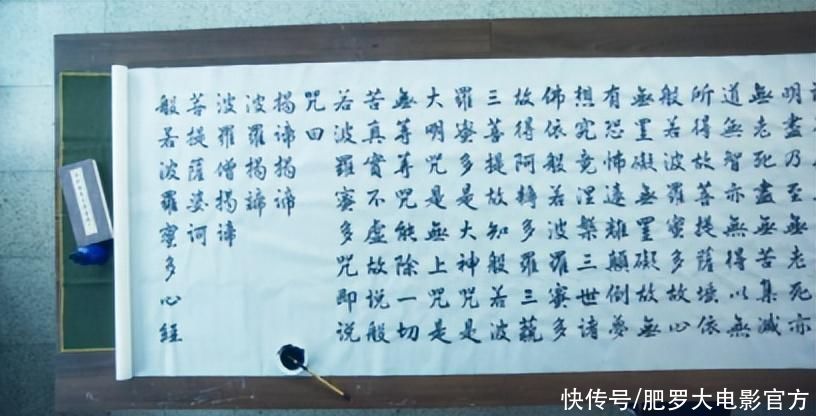 明盡乃至無老死亦
無老死盡無苦集滅
道無智亦無得以無
所得故菩提薩埵依
般若波羅蜜多故心
無罣礙無罣礙故無
有恐怖遠離顛倒夢
想究竟涅槃三世諸
佛依般若波羅蜜多
故得阿耨多羅三藐
三菩提故知般若波
羅蜜多是大神咒是
大明咒是無上咒是
無等等咒能除一切
苦真實不虛故說般
若波羅蜜多咒即說
咒曰
揭諦揭諦
波羅揭諦
波羅僧揭諦
菩提薩婆訶
般若波羅蜜多心經
快传号/肥罗大电影官方